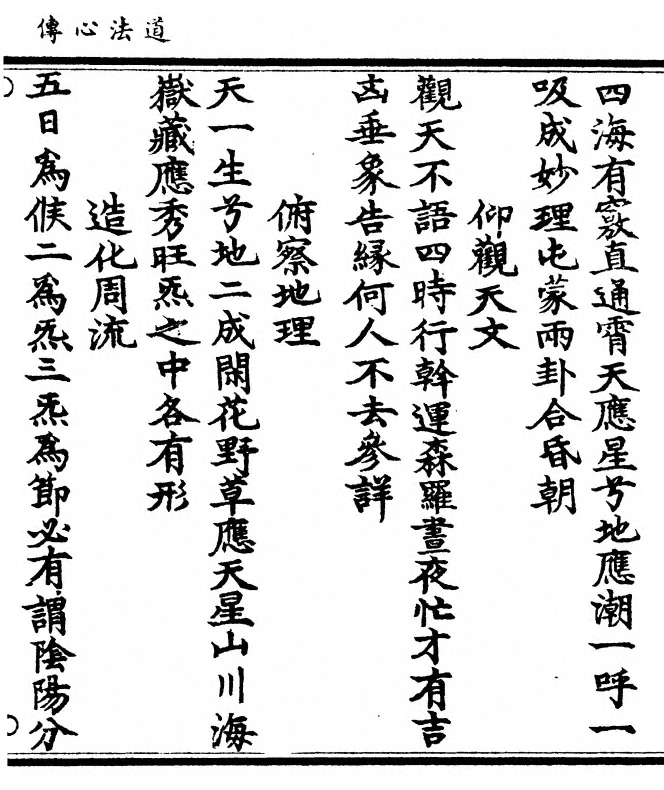 道法心傳
四海有竅直通霄天應星兮地應潮一呼一
吸成妙理屯蒙兩卦合昏朝
仰觀天文
觀天不語四時行斡運森羅晝夜忙才有吉
凶垂象告緣何人不去參詳
俯察地理
天一生兮地二成閑花野草應天星山川海
嶽藏應秀旺炁之中各有形
造化周流
五日為候二為炁三炁為節必有謂陰陽分